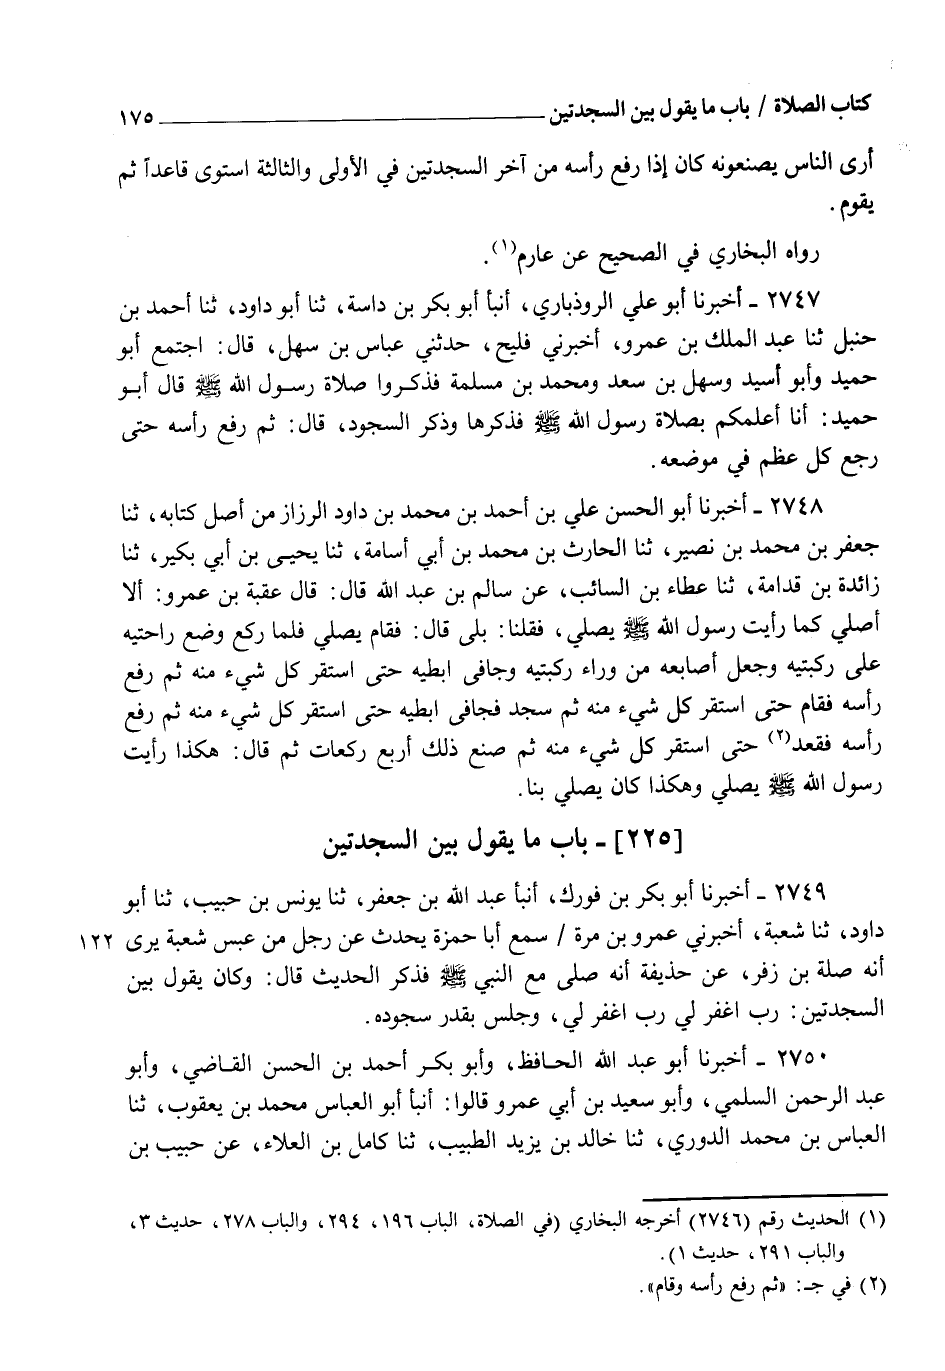 كتاب الصلاة / باب ما يقول بين السجدتين ١٧٥
أرى الناس يصنعونه كان إذا رفع رأسه من آخر السجدتين في الأولى والثالثة استوى قاعداً ثم
يقوم.
رواه البخاري في الصحيح عن عارم(١).
٢٧٤٧ ـ أخبرنا أبو علي الروذباري، أنبأ أبو بكر بن داسة، ثنا أبو داود، ثنا أحمد بن
حنبل ثنا عبد الملك بن عمرو، أخبرني فليح، حدثني عباس بن سهل، قال: اجتمع أبو
حميد وأبو أسيد وسهل بن سعد ومحمد بن مسلمة فذكروا صلاة رسول الله ﷺ قال أبو
حميد: أنا أعلمكم بصلاة رسول الله ﷺ فذكرها وذكر السجود، قال: ثم رفع رأسه حتى
رجع كل عظم في موضعه.
٢٧٤٨ ـ أخبرنا أبو الحسن علي بن أحمد بن محمد بن داود الرزاز من أصل كتابه، ثنا
جعفر بن محمد بن نصير، ثنا الحارث بن محمد بن أبي أسامة، ثنا يحيى بن أبي بكير، ثنا
زائدة بن قدامة، ثنا عطاء بن السائب، عن سالم بن عبد الله قال: قال عقبة بن عمرو: ألا
أصلي كما رأيت رسول الله ﷺ يصلي، فقلنا: بلى قال: فقام يصلي فلما ركع وضع راحتيه
على ركبتيه وجعل أصابعه من وراء ركبتيه وجافى ابطيه حتى استقر كل شيء منه ثم رفع
رأسه فقام حتى استقر كل شيء منه ثم سجد فجافى ابطيه حتى استقر كل شيء منه ثم رفع
رأسه فقعد(٢) حتى استقر كل شيء منه ثم صنع ذلك أربع ركعات ثم قال: هكذا رأيت
رسول الله ﷺ يصلي وهكذا كان يصلي بنا.
[٢٢٥] ـ باب ما يقول بين السجدتين
٢٧٤٩ ـ أخبرنا أبو بكر بن فورك، أنبأ عبد الله بن جعفر، ثنا يونس بن حبيب، ثنا أبو
داود، ثنا شعبة، أخبرني عمرو بن مرة / سمع أبا حمزة يحدث عن رجل من عبس شعبة يرى ١٢٢
أنه صلة بن زفر، عن حذيفة أنه صلى مع النبي ﷺ فذكر الحديث قال: وكان يقول بين
السجدتين: رب اغفر لي رب اغفر لي، وجلس بقدر سجوده.
٢٧٥٠ ـ أخبرنا أبو عبد الله الحافظ، وأبو بكر أحمد بن الحسن القاضي، وأبو
عبد الرحمن السلمي، وأبو سعيد بن أبي عمرو قالوا: أنبأ أبو العباس محمد بن يعقوب، ثنا
العباس بن محمد الدوري، ثنا خالد بن يزيد الطبيب، ثنا كامل بن العلاء، عن حبيب بن
(١) الحديث رقم (٢٧٤٦) أخرجه البخاري (في الصلاة، الباب ١٩٦، ٢٩٤، والباب ٢٧٨، حديث ٣،
والباب ٢٩١، حديث ١).
(٢) في جـ: «ثم رفع رأسه وقام».